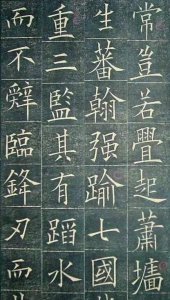 常豈若舋起蕭墻
生蕃翰强踰七國
重三監其有蹈水
而不辤臨鋒刃而